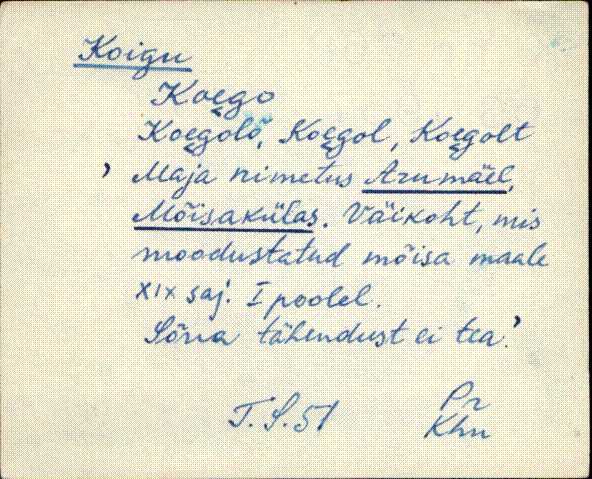 Koigu
Koego
Koegolõ, Koegol, Koegolt
, Maja nimetus Arumäel,
Mõisakülas. Väikoht, mis
moodustatud mõisa maale
XIX saj. I poolel.
Sõna tähendust ei tea.'
T.S.51 Pr
Khn